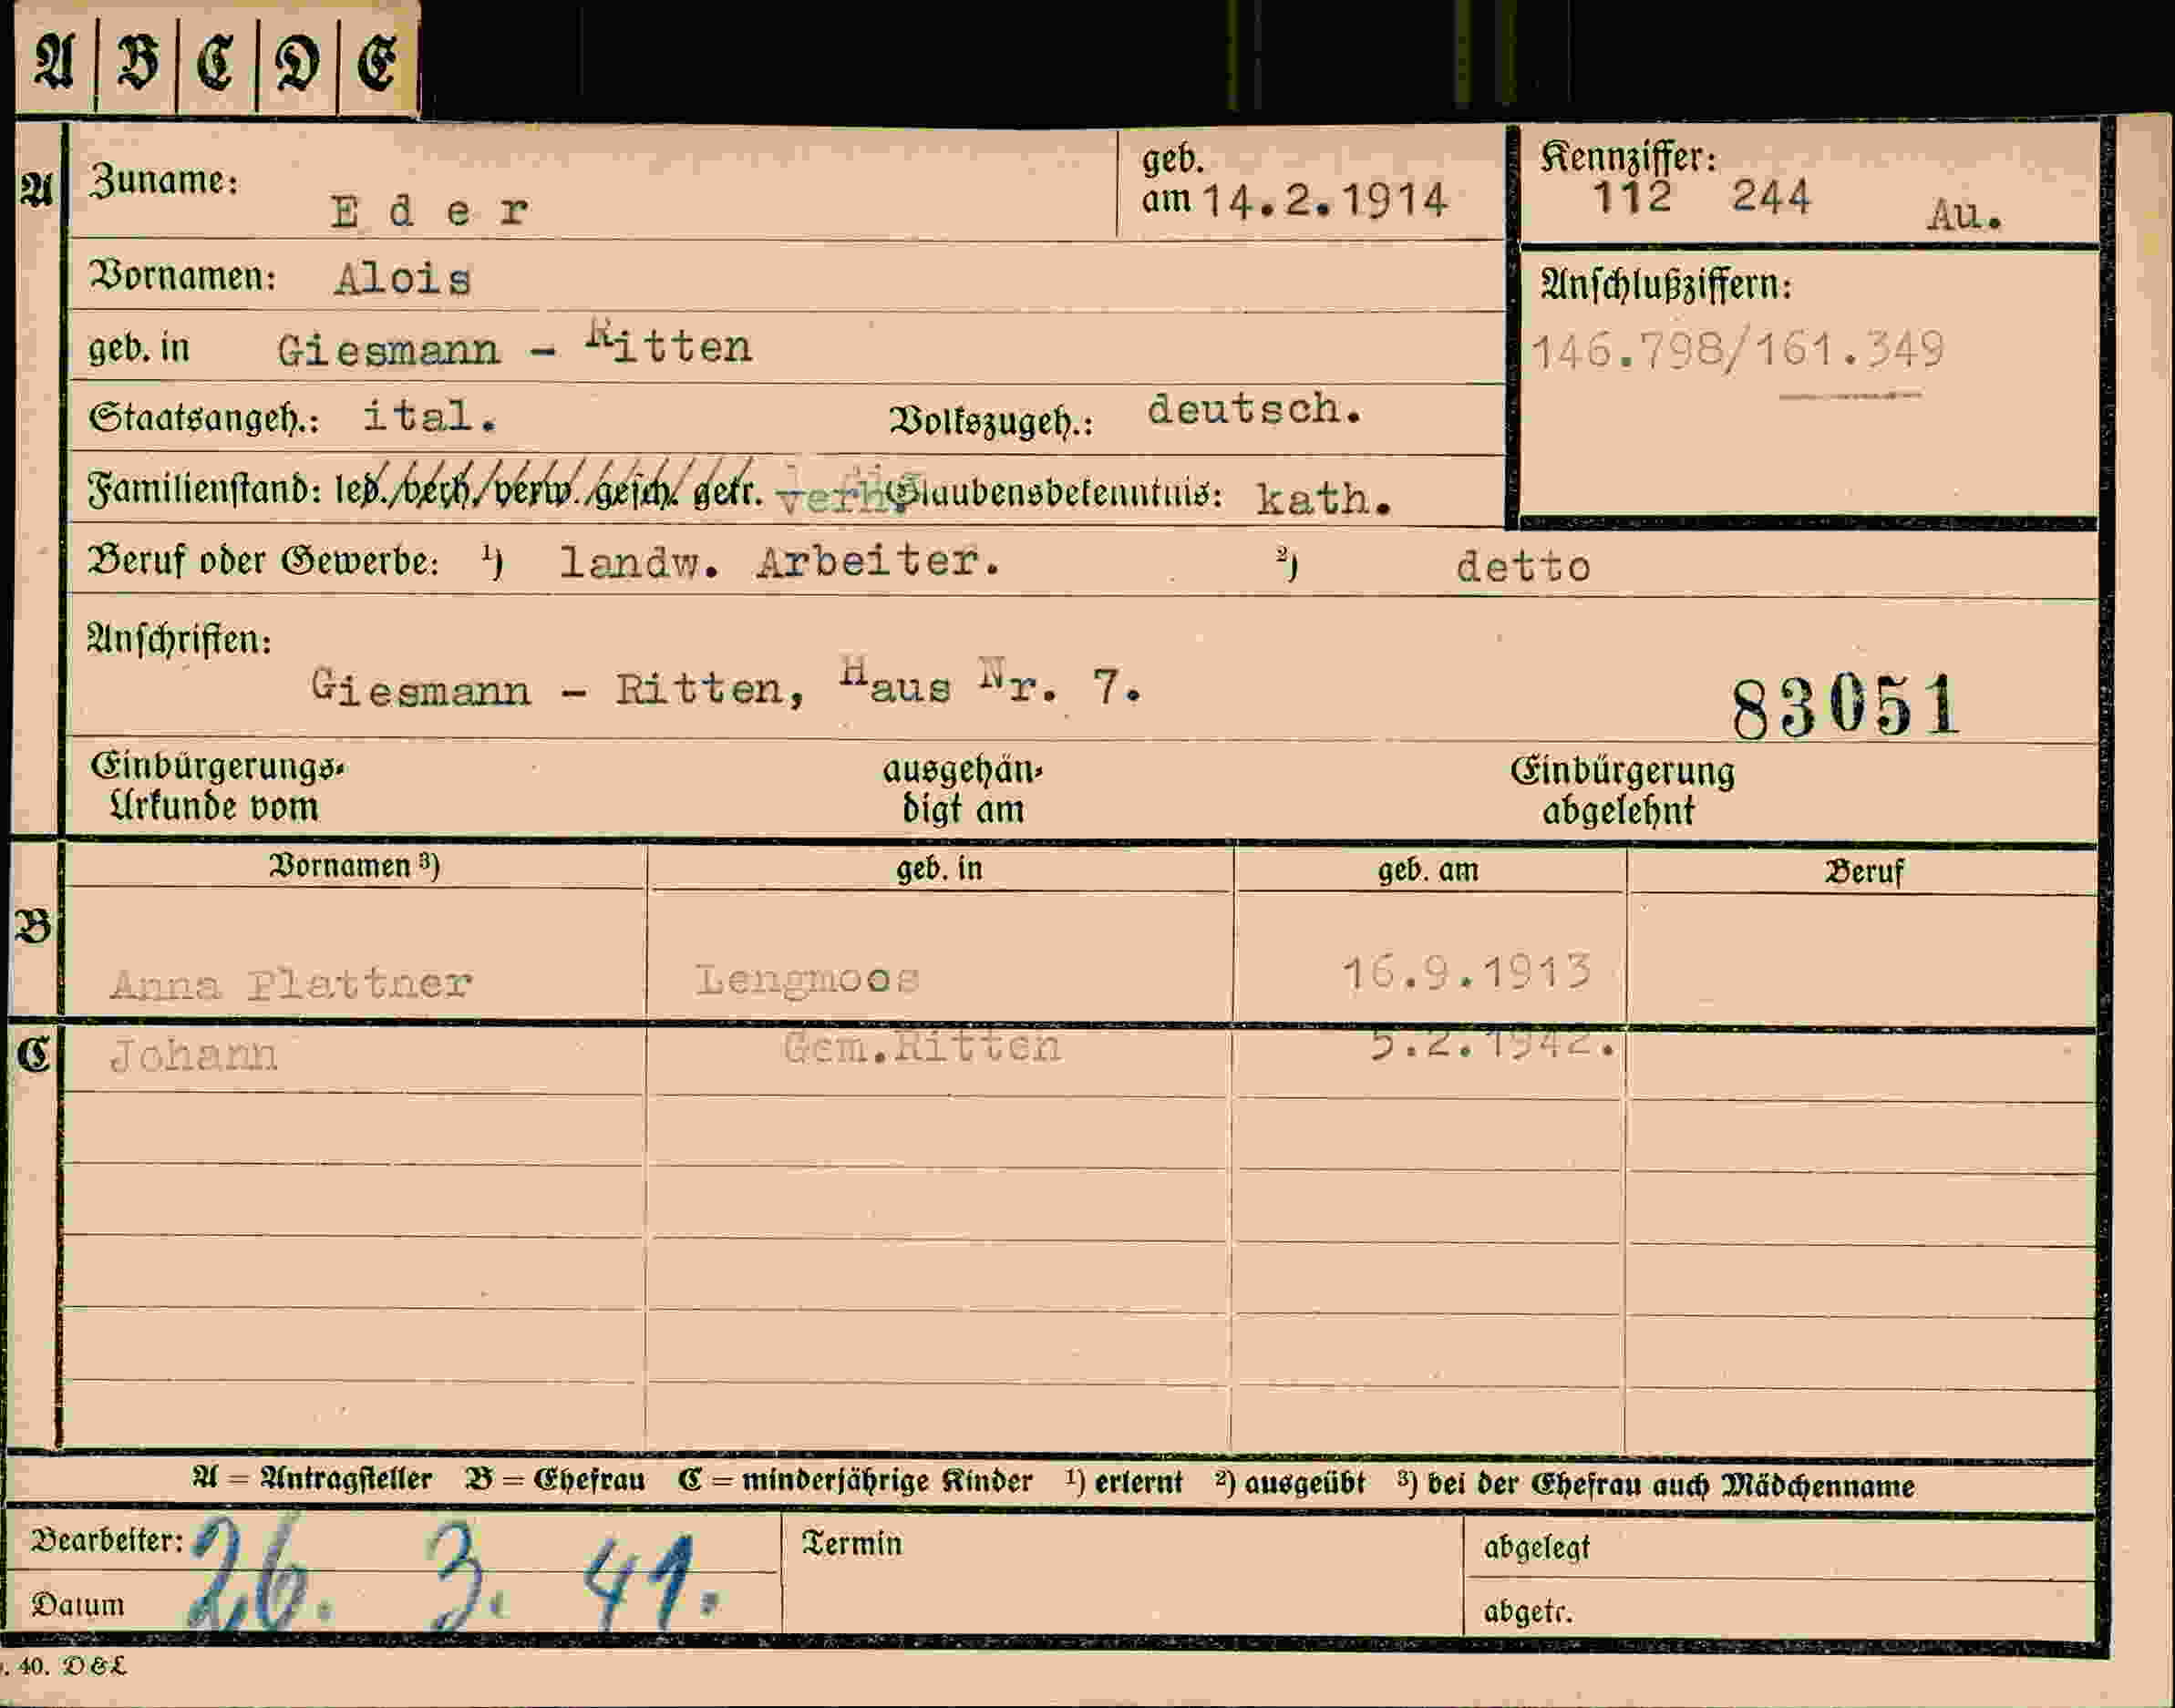 A B C D E
A Zuname: Eder geb. am 14.2.1914 Kennziffer: 112 244 Au.
Vornamen: Alois Anschlußziffern:
geb. in Giesmann - Ritten 146.798/161.349
Staatsangeh.: ital. Volkszugeh.: deutsch.
Familienstand: led./verh./verw./gesch. getr. verh. Glaubensbekenntnis: kath.
Beruf oder Gewerbe: 1) landw. Arbeiter. 2) detto
Anschriften:
Giesmann - Ritten, Haus Nr. 7. 83051
Einbürgerungs- ausgehän- Einbürgerung
Urkunde vom digt am abgelehnt
Vornamen 3) geb. in geb. am Beruf
B
Anna Plattner Lengmoos 16.9.1913
C Johann Gem.Ritten 5.2.1942.
A = Antragsteller B = Ehefrau C = minderjährige Kinder 1) erlernt 2) ausgeübt 3) bei der Ehefrau auch Mädchenname
Bearbeiter: 26. 3. 41. Termin abgelegt
Datum abgetr.
. 40. D&L